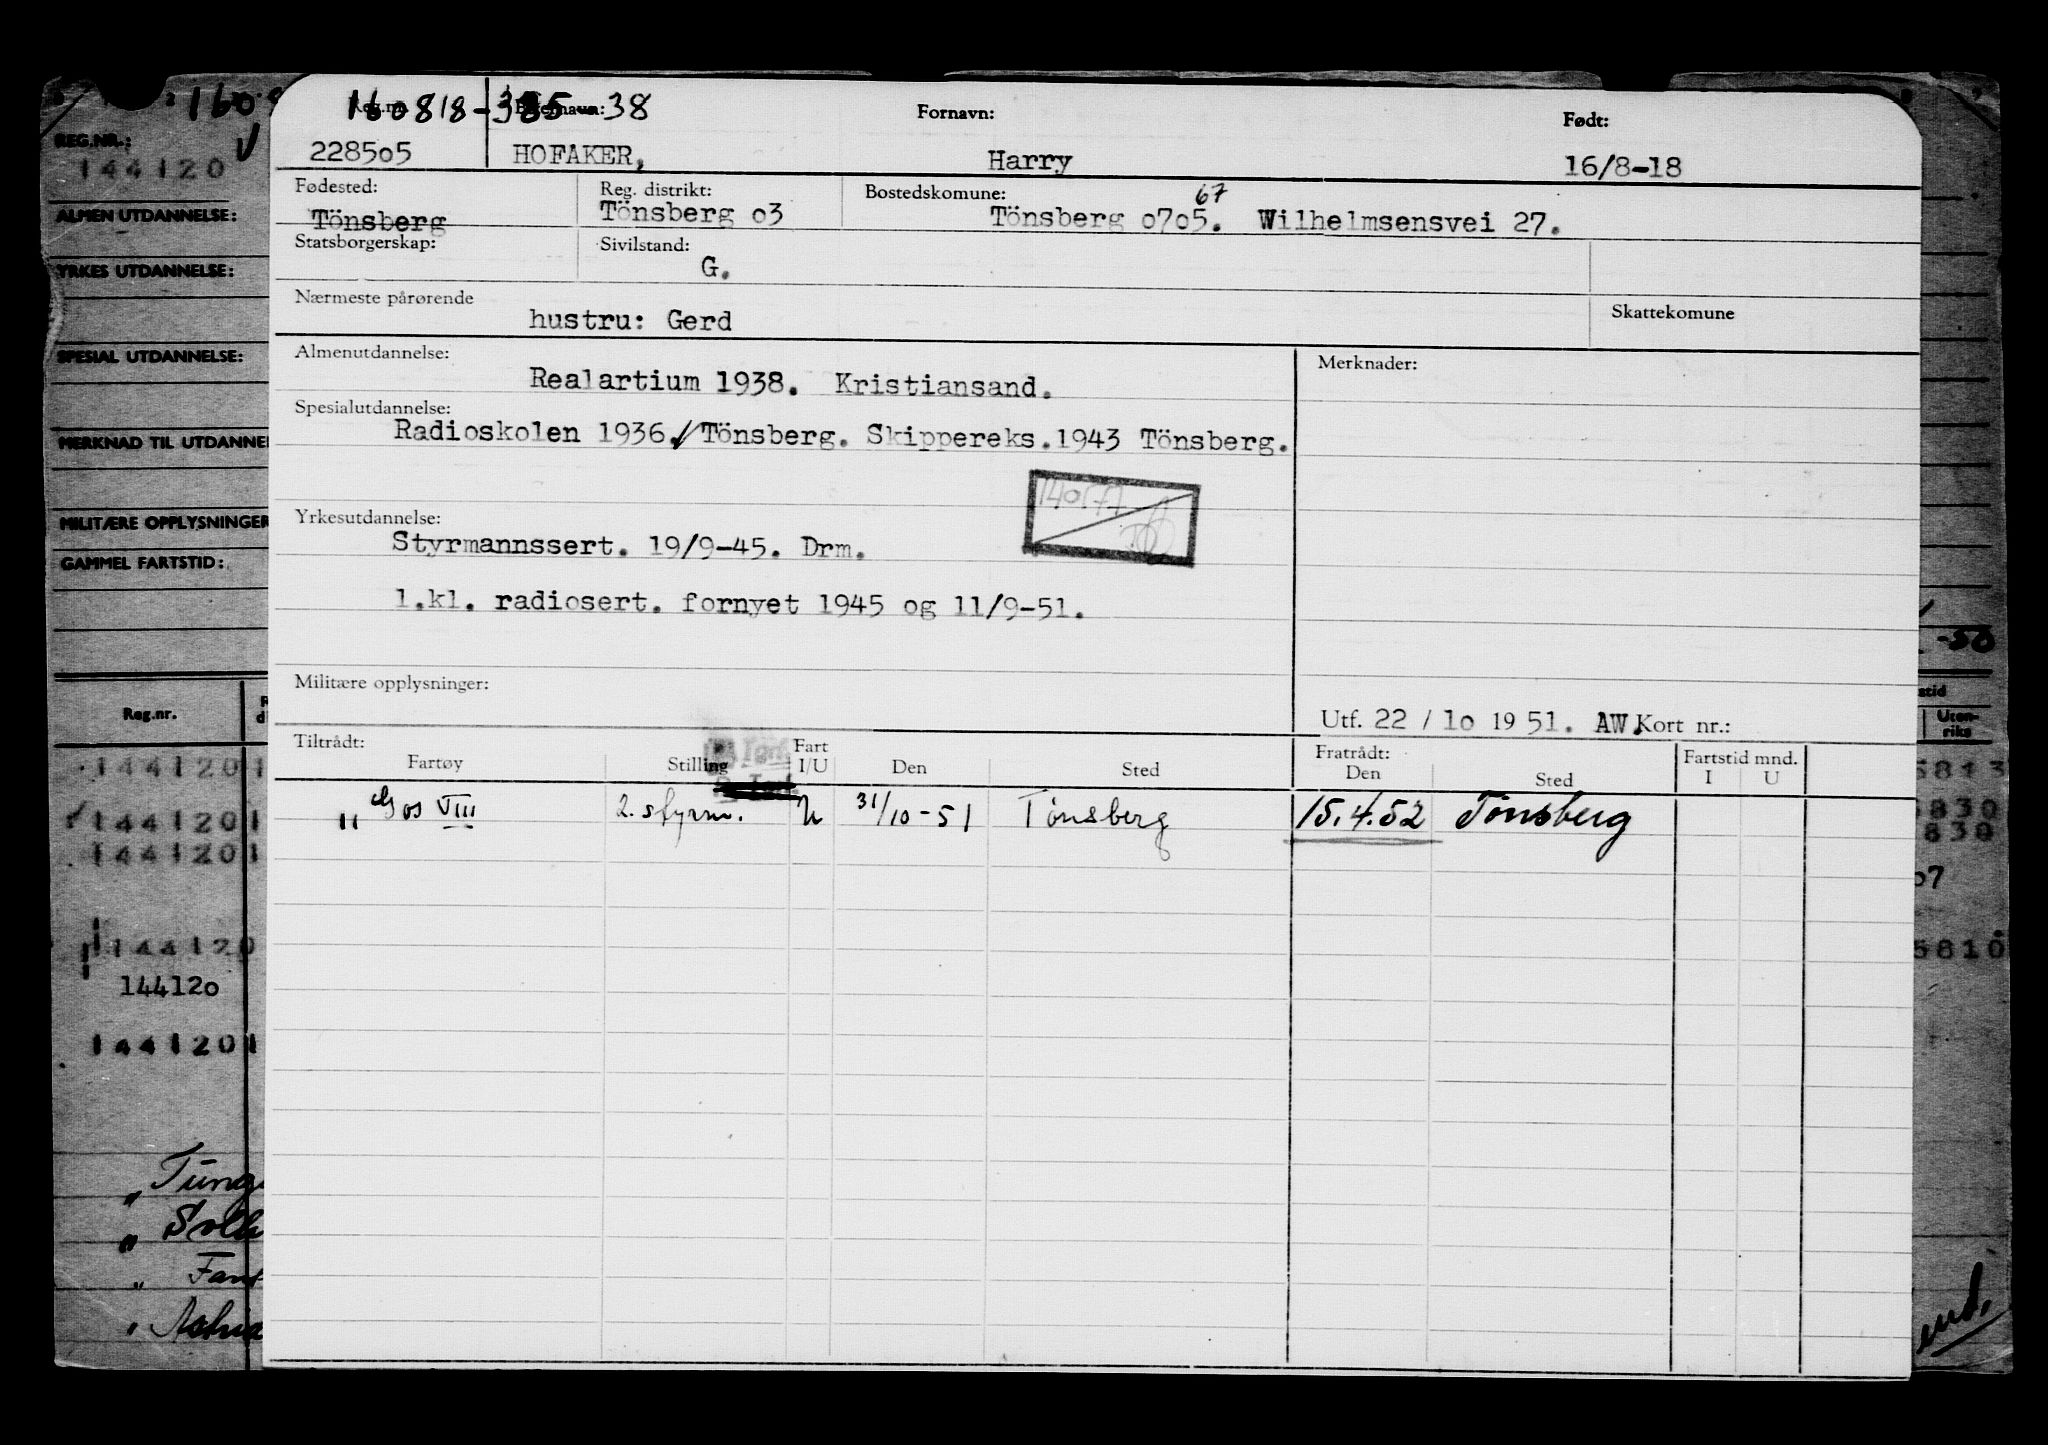 160818-385-38
Reg.nr. Etternavn: Fornavn: Født:
228505 HOFAKER, Harry 16/8-18
Fødested: Reg. distrikt: Bostedskomune: 67
Tönsberg Tönsberg o3 Tönsberg o7o5. Wilhelmsensvei 27.
Statsborgerskap: Sivilstand:
G.
Nærmeste pårørende Skattekomune
hustru: Gerd
Almenutdannelse: Merknader:
Realartium 1938. Kristiansand.
Spesialutdannelse:
Radioskolen 1936./Tönsberg. Skippereks.1943 Tönsberg.
Yrkesutdannelse:
Styrmannssert. 19/9-45. Drm.
1.kl. radiosert. fornyet 1945 og 11/9-51.
Militære opplysninger:
Utf. 22 / 1o 19 51. AW. Kort nr.:
Tiltrådt: Fart Fratrådt: Fartstid mnd.
Fartøy Stilling I/U Den Sted Den Sted I U
" Gos VIII 2. styrm. U 31/10-51 Tönsberg 15.4.52 Tönsberg
REG.NR.:
144120
ALMEN UTDANNELSE:
YRKES UTDANNELSE:
SPESIAL UTDANNELSE:
MERKNAD TIL UTDANNE
MILITÆRE OPPLYSNINGER
GAMMEL FARTSTID:
-50
Reg.nr.
stid
Uten-
riks
1441201 5813
1441201 5830
1441201 830
o7
144120 5810
14412o
1441201
" Tung
" Solb
" Fant
" Astria
md.